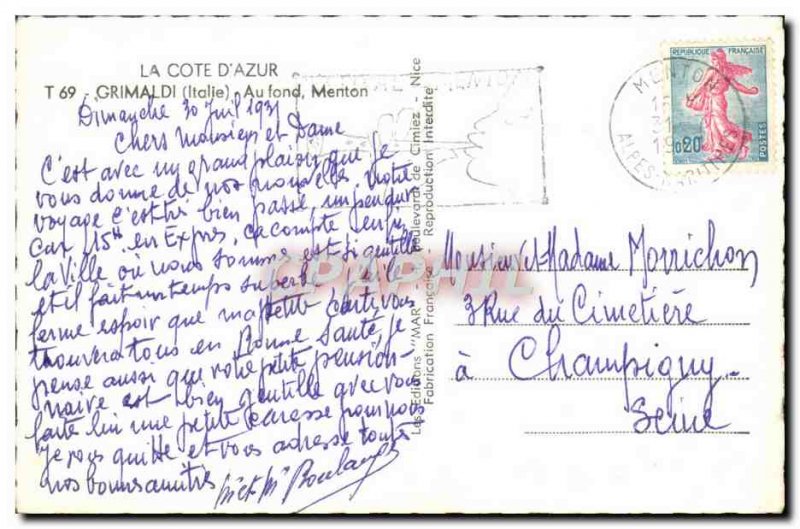 LA COTE D'AZUR
T 69 - GRIMALDI (Italie) - Au fond, Menton
Dimanche 30 Juil 
Chers Monsieur et Dame
C'est avec un grand plaisir que je
vous donne de nos nouvelles. Notre
voyage c'est bien passé, un peu dur
car 15H en Expres, ça compte enfin
la ville où nous somme est si gentille
et il fait un temps superbe
ferme espoir que ma petite carte vous
trouvera tous en Bonne Santé, je
pense aussi que votre petite pension-
naire est bien gentille avec vous
faite lui une petite caresse pour nous
je vous quitte et vous adresse toutes
nos bonnes amitiés
Mr et Me
Les Editions "MAR" - Boulevard de Cimiez - Nice
Fabrication Française - Reproduction Interdite
REPUBLIQUE FRANÇAISE
0,20
POSTES
MENTON
ALPES-MARITIMES
CPAPHIL
Monsieur et Madame Morrichon
3 Rue du Cimetière
à Champigny
Seine